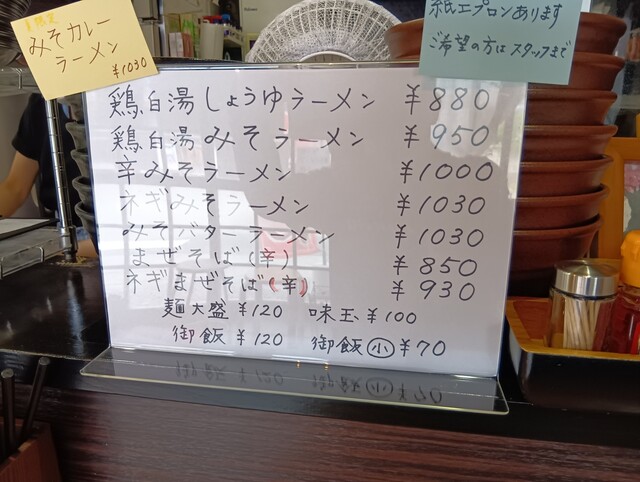 限定
みそカレー
ラーメン
¥1030
紙エプロンあります
ご希望の方はスタッフまで
鶏白湯しょうゆラーメン ¥880
鶏白湯みそラーメン ¥950
辛みそラーメン ¥1000
ネギみそラーメン ¥1030
みそバターラーメン ¥1030
まぜそば(辛) ¥850
ネギまぜそば(辛) ¥930
麺大盛 ¥120 味玉 ¥100
御飯 ¥120 御飯(小) ¥70